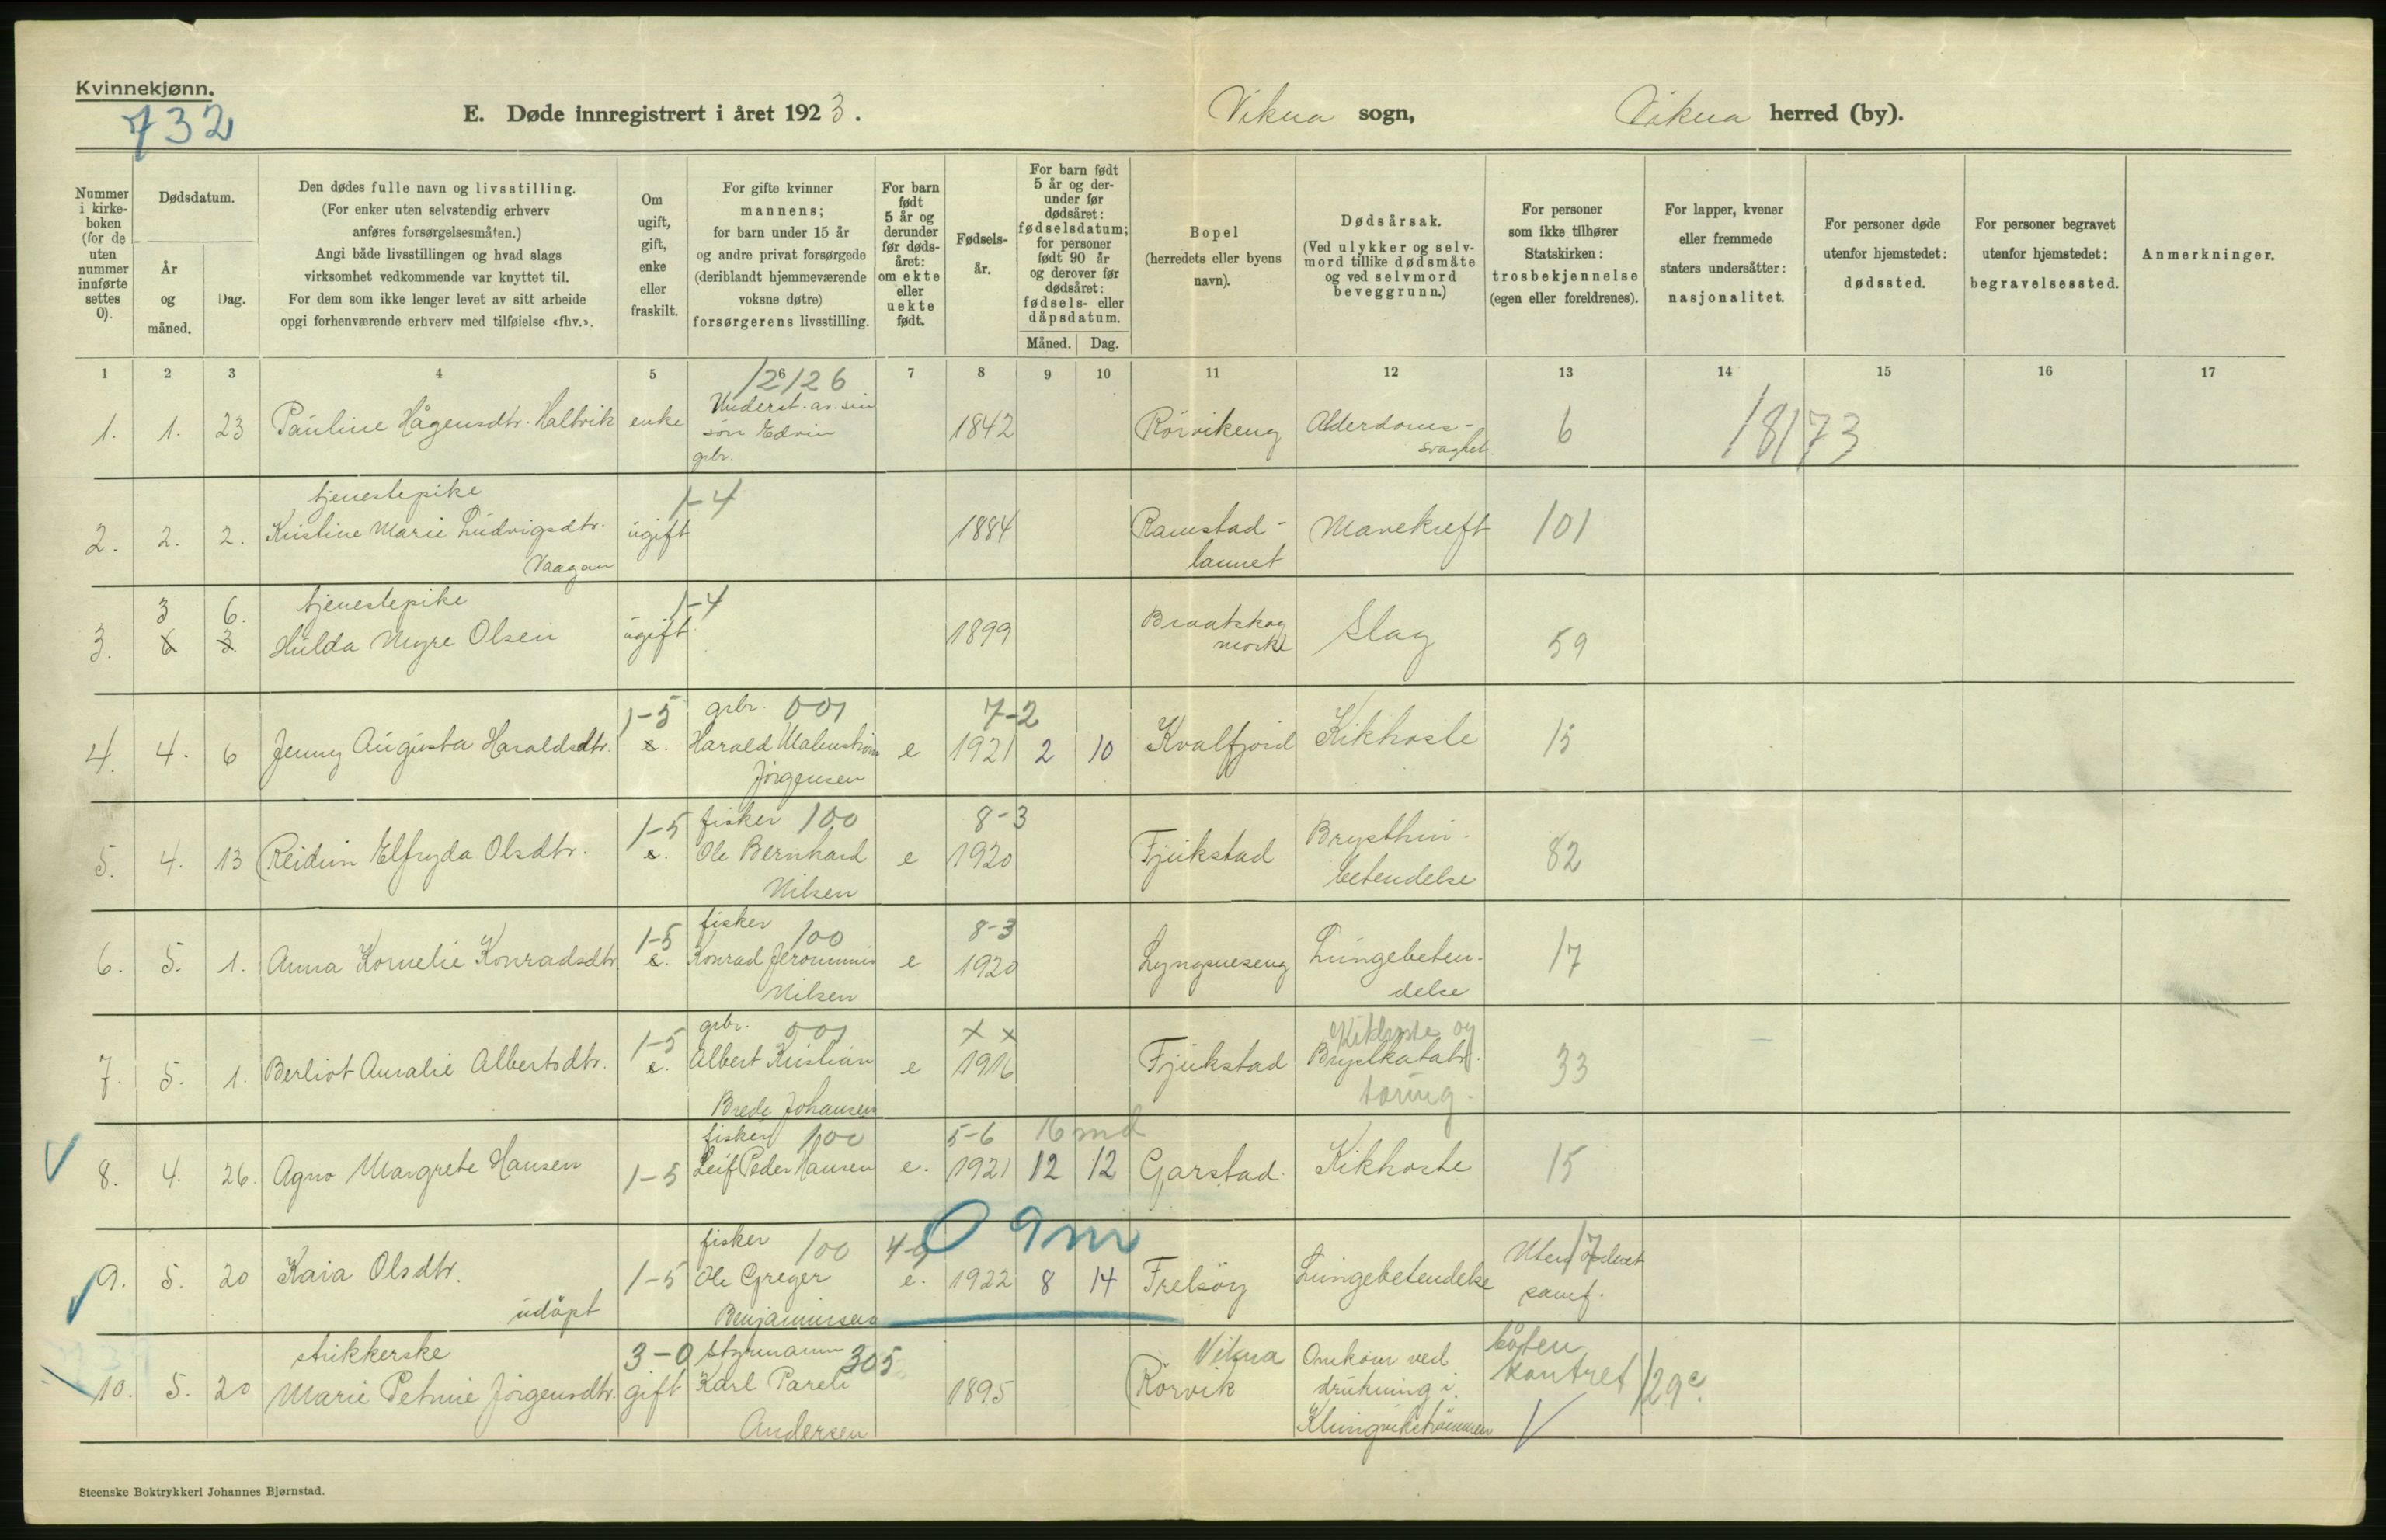 Kvinnekjønn.
732
E. Døde innregistrert i året 1923.
Vikna sogn,
Vikna herred (by).
Nummer i kirke-boken (for de uten nummer innførte settes 0).
Dødsdatum.
År og måned.
Dag.
Den dødes fulle navn og livsstilling.
(For enker uten selvstendig erhverv anføres forsørgelsesmåten.)
Angi både livsstillingen og hvad slags virksomhet vedkommende var knyttet til.
For dem som ikke lenger levet av sitt arbeide opgi forhenværende erhverv med tilføielse «fhv.».
Om ugift, gift, enke eller fraskilt.
For gifte kvinner mannens; for barn under 15 år og andre privat forsørgede (deriblandt hjemmeværende voksne døtre) forsørgerens livsstilling.
For barn født 5 år og derunder før døds-året: om ekte eller uekte født.
Fødsels-år.
For barn født 5 år og der-under før dødsåret: fødselsdatum; for personer født 90 år og derover før dødsåret: fødsels- eller dåpsdatum.
Måned. Dag.
Bopel (herredets eller byens navn).
Dødsårsak.
(Ved ulykker og selv-mord tillike dødsmåte og ved selvmord beveggrunn.)
For personer som ikke tilhører Statskirken: trosbekjennelse (egen eller foreldrenes).
For lapper, kvener eller fremmede staters undersåtter: nasjonalitet.
For personer døde utenfor hjemstedet: dødssted.
For personer begravet utenfor hjemstedet: begravelsessted.
Anmerkninger.
1 2 3 4 5 6 7 8 9 10 11 12 13 14 15 16 17
12/126
1. 1. 23 Pauline Hågensdtr. Haltvik enke Underst. av sin søn Edvin gbr. 1842 Rörvikeng Alderdoms-svaghet 6 18/73
tjenestepike 1-4
2. 2. 2. Kristine Marie Ludvigsdtr. Vaagan ugift 1884 Ramstad-launet Mavekreft 101
3 6. tjenestepike 1-4
3. 6 3 Hulda Myre Olsen ugift 1899 Braatskog Slag 59
1-5 gbr. 001 7-2
4. 4. 6 Jenny Augusta Haraldsdtr. e. Harald Malmstrøm Jörgensen e 1921 2 10 Kvalfjord Kikhoste 15
1-5 fisker 100 8-3
5. 4. 13 Reidun Elfryda Olsdtr. e. Ole Bernhard Nilsen e 1920 Fjukstad Brysthin-betendelse 82
1-5 fisker 100 8-3
6. 5. 1. Anna Kornelie Konradsdtr e. Konrad Jeronimus Nilsen e 1920 Lyngsneseng Lungebeten-delse 17
1-5 gbr. 001 x x
7. 5. 1. Berliot Amalie Albertsdtr. e. Albert Kristian Brede Johansen e 1916 Fjukstad Kikhoste og Brystkatarr. tæring. 33
fisker 100 5-6 16 md
8. 4. 26. Agno Margrete Hansen 1-5 Leif Peder Hansen e. 1921 12 12 Garstad Kikhoste 15
fisker 100 4-9 0 9 m
9. 5. 20 Kaia Olsdtr. udöpt 1-5 Ole Greger Benjaminsen e. 1922 8 14 Frelsöy Lungebetendelse Uten samf. 17
strikkerske 3-0 styrmann 305
10. 5. 20 Marie Petrine Jörgensdtr. gift Karl Pareli Andersen 1895 Vikna Rörvik Omkom ved drukning i Klungvikströmmen båten kantret 129c.
Steenske Boktrykkeri Johannes Bjørnstad.